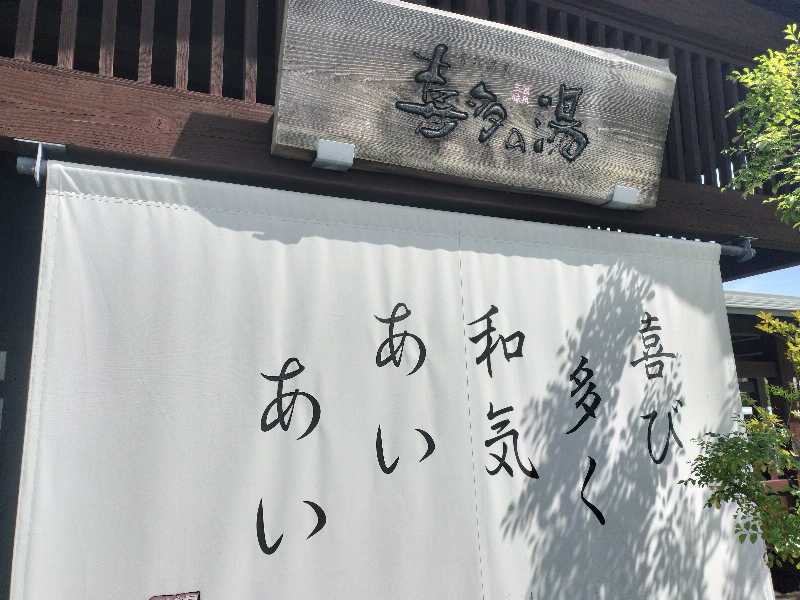 喜多の湯
喜び
多く
和気
あい
あい